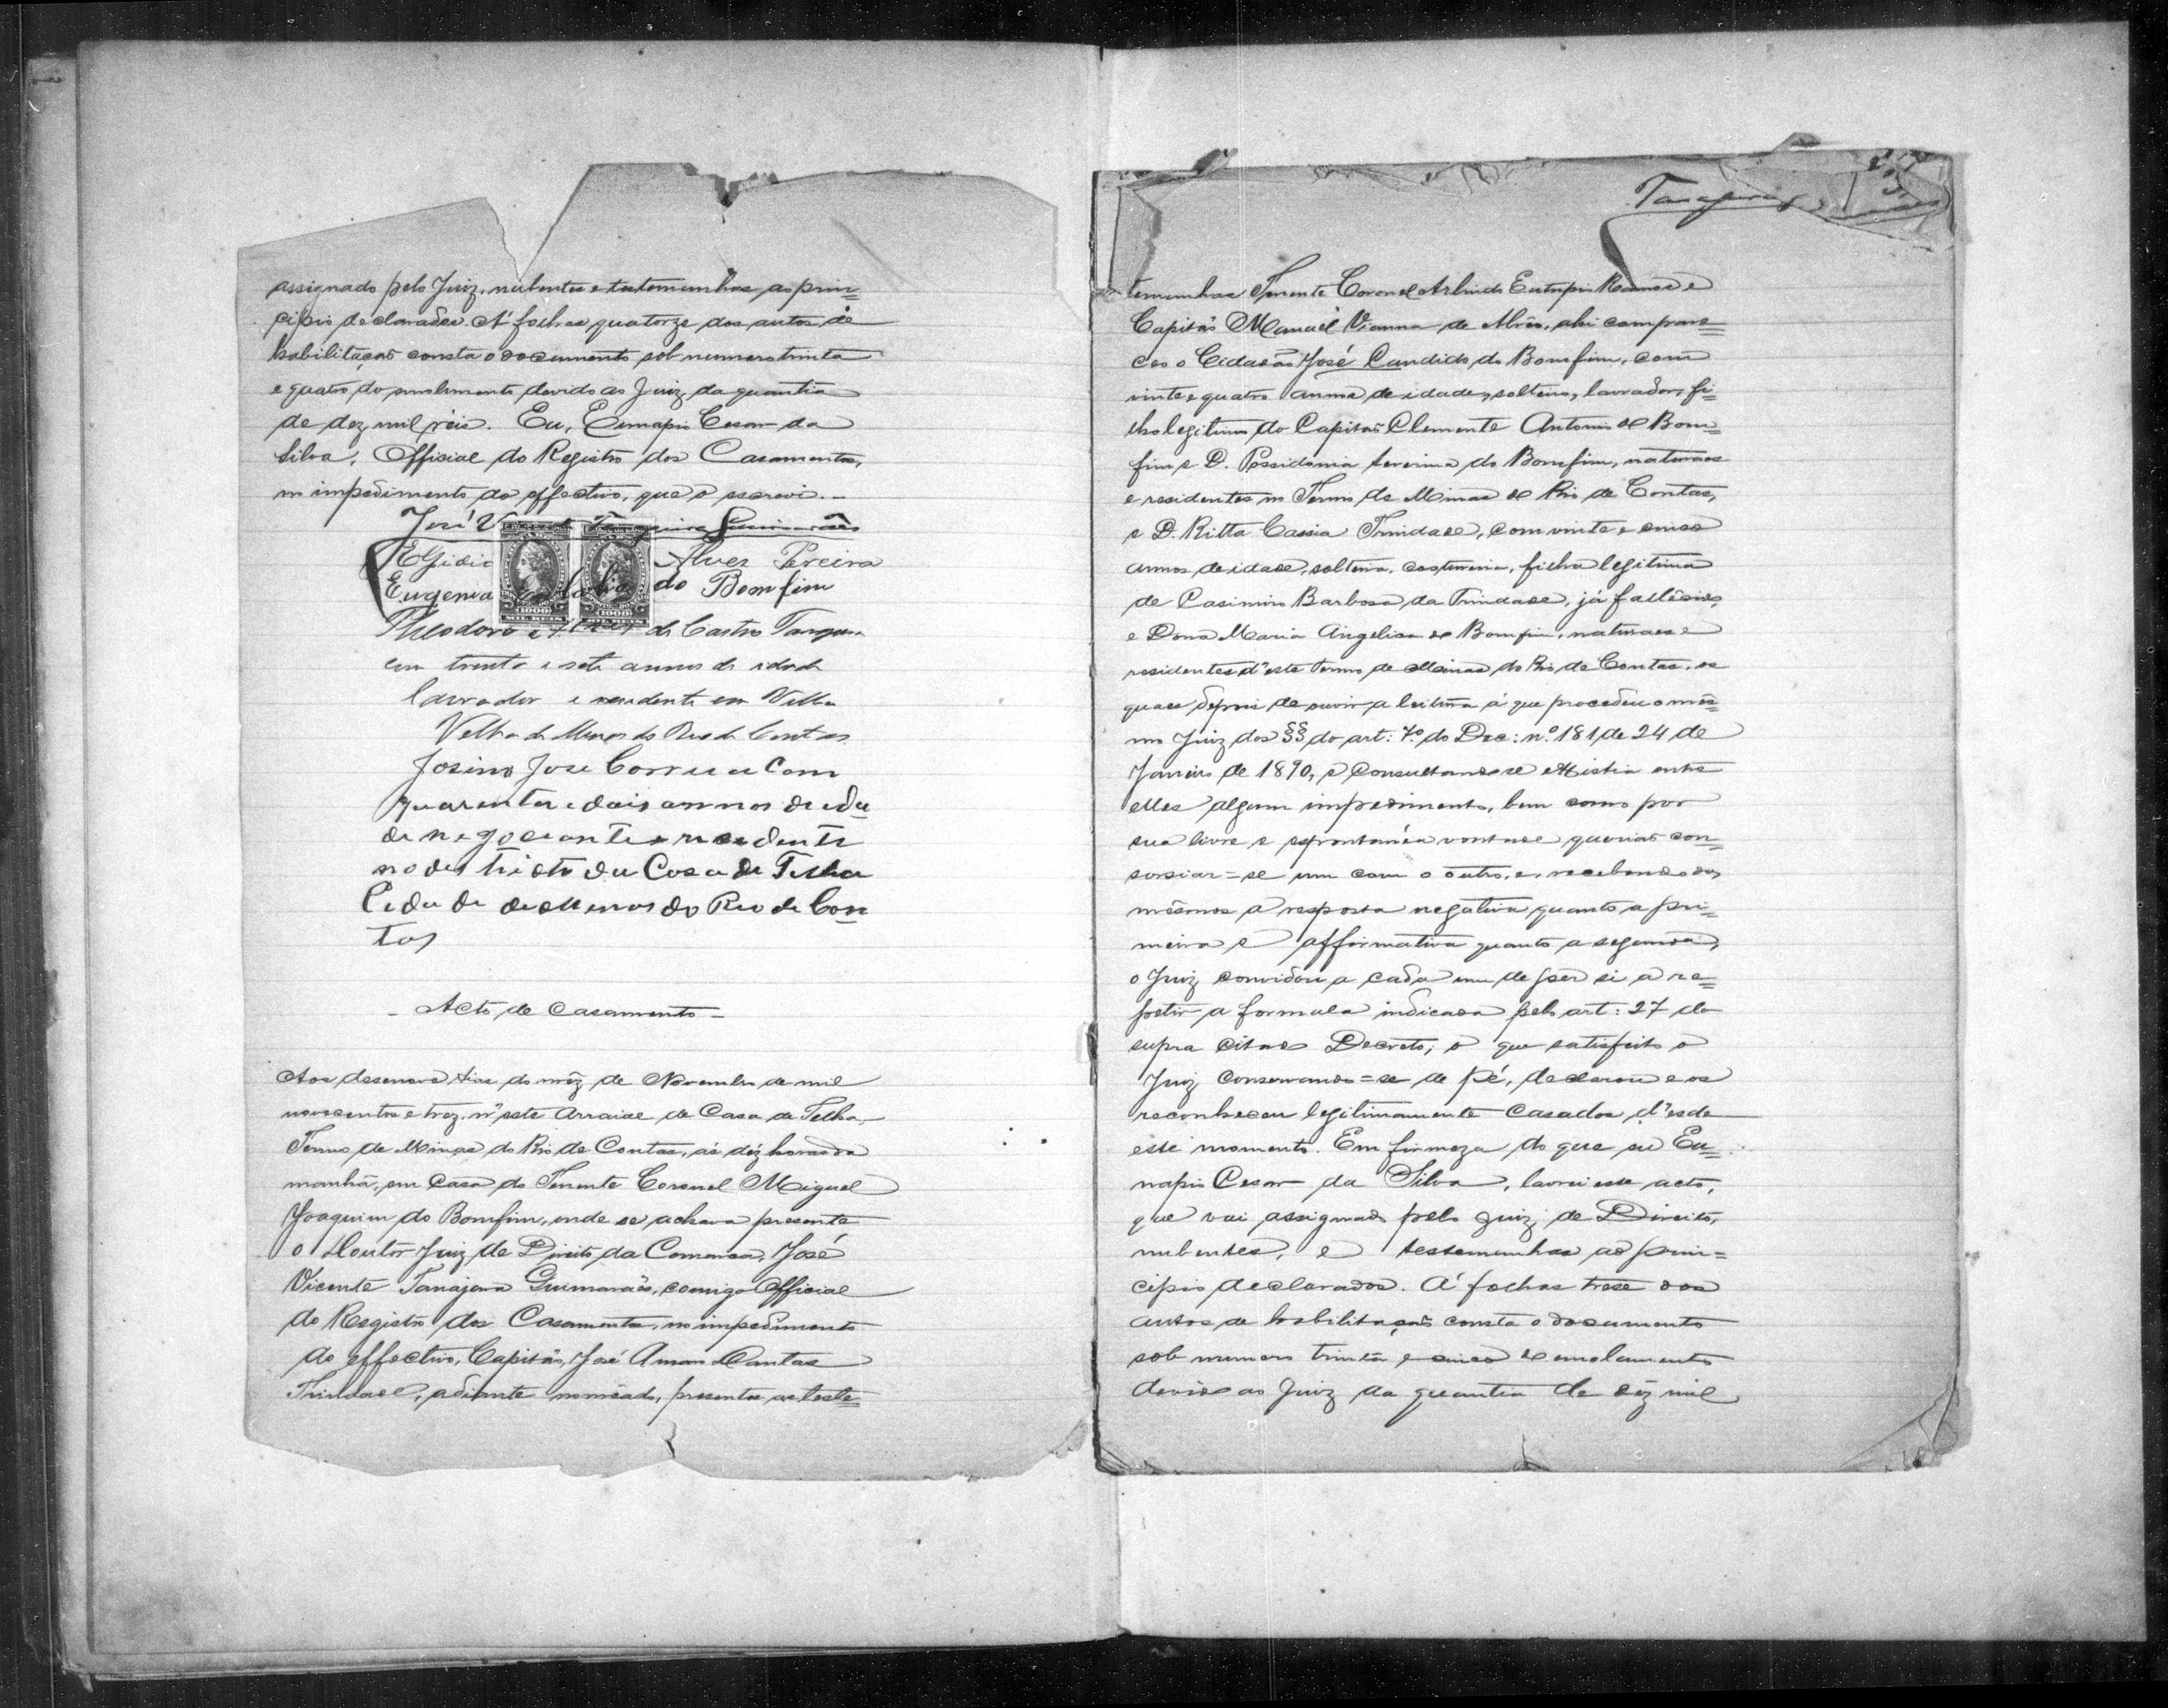 assignado pelo Juiz, nubentes e testemunhas ao prin=
cipio declarados. A' folhas quatorze dos autos de
habilitação consta o documento sob numero trinta
e quatro do emolumento devido ao Juiz da quantia
de dez mil réis. Eu, Eunapio Cesar da
Silva, Official do Registro dos Casamentos,
no impedimento do effectivo, que o escrevi.-
José Guimarães
Egidio Alves Pereira
Eugenia do Bomfim
Theodoro de Castro
com trenta e sete annos de idade
lavrador e residente em Villa
Velha de Minas do Rio de Contas
Josino Jose Correia Com
quarenta e dois annos de eda
de negociante e resedente
no destricto da Casa de Telha
Cidade de Menas do Rio de Con
tas
- Acto de Casamento -
Aos desenove dias do mêz de Novembro de mil
novecentos e trez, n'este Arraial de Casa de Telha,
Termo de Minas do Rio de Contas, ás déz horas da
manhã, em Casa do Tenente Coronel Miguel
Joaquim do Bomfim, onde se achava presente
o Doutor Juiz de Direito da Comarca, José
Vicente Tanajura Guimarães, comigo Official
do Registro dos Casamentos, no impedimento
do effectivo, Capitão, José Dantas
Trindade, adiante nomeado, presentes as teste=
Tanajura
temunhas Tenente Coronel Arlindo Eutropio Ramos e
Capitão Manuél Vianna de ahi compare=
ceo o Cidadão José Candido do Bomfim, com
vinte e quatro annos de idade, solteiro, lavrador, fi=
lho legitimo do Capitão Clemente Antonio do Bom=
fim e D. Possidonia Severina do Bomfim, naturaes
e residentes no Termo de Minas do Rio de Contas,
e D. Ritta Cassia Trindade, com vinte e cinco
annos de idade, solteira, costureira, filha legitima
de Casimiro Barbosa da Trindade, já fallecido,
e Dona Maria Angelica do Bomfim, naturaes e
residentes d'este Termo de Minas do Rio de Contas, os
quaes depois de ouvir a leitura á que procedeu o més=
mo Juiz dos §§ do art: 7.º do Dec: n.º 181 de 24 de
Janeiro de 1890, e Consultando se existia entre
elles algum impedimento, bem como por
sua livre e espontanéa vontade queriaõ con=
sorciar=se um com o outro, e, recebendo dos
mésmos a resposta negativa quanto a pri=
meira e affirmativa quanto a segunda,
o Juiz convidou a cada um de per si a re=
petir a formula indicada pelo art: 27 do
supra citado Decreto; o que satisfeito o
Juiz Conservando=se de pé, declarou e os
reconheceu legitimamente Casados d'esde
este momento. Em firmeza do que eu Eu=
napio Cesar da Silva, lavrei esse acto,
que vai assignado pelo Juiz de Direito,
nubentes, e testemunhas ao prin=
cipio declarados. A' folhas trese dos
autos de habilitação consta o documento
sob numero trinta e cinco do emolumento
devido ao Juiz da quantia de dez mil